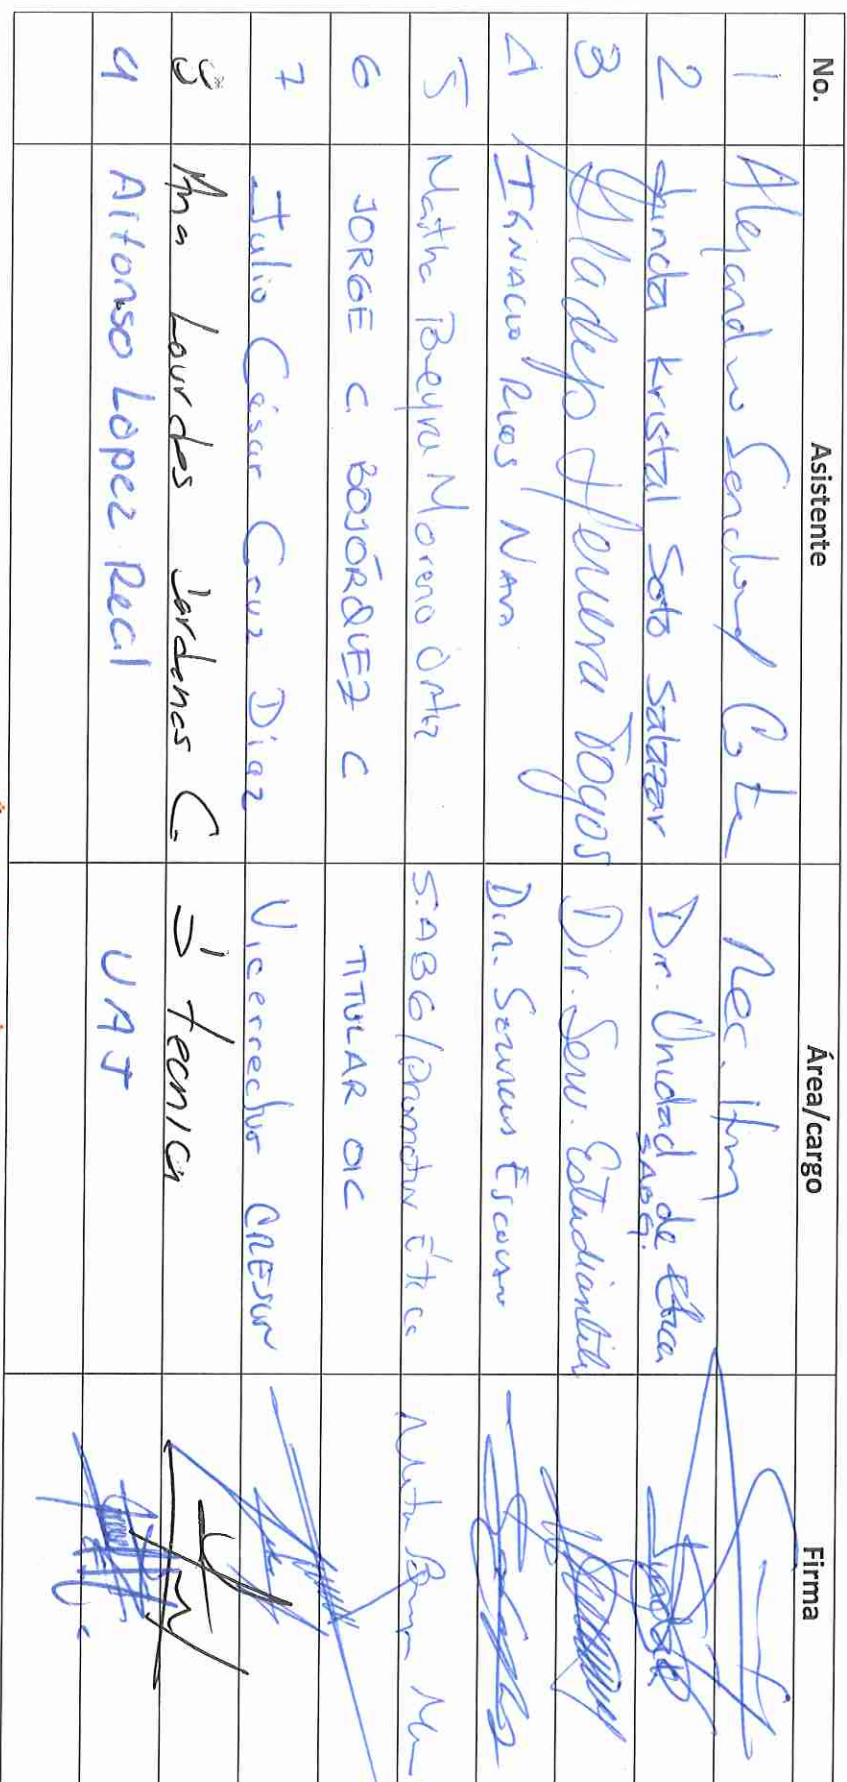 No. Asistente Área/cargo Firma
1 Alejandro Cota
2 Linda Kristal Soto Salazar Dir. Unidad de Ética
SABG.
3 Gladys Herrera Dir. Serv. Estudiantiles
4 IGNACIO RIOS NAVA Dir. Servicios Escolar
5 Maitha Pereyra Moreno Ortiz S.ABG/Promotor Ética
6 JORGE C BOJÓRQUEZ C TITULAR OIC
7 Julio César Cruz Díaz Vicerrector CRESUR
8 Ana Lourdes Cardenas C. S Tecnica
9 Alfonso López Real UAJ